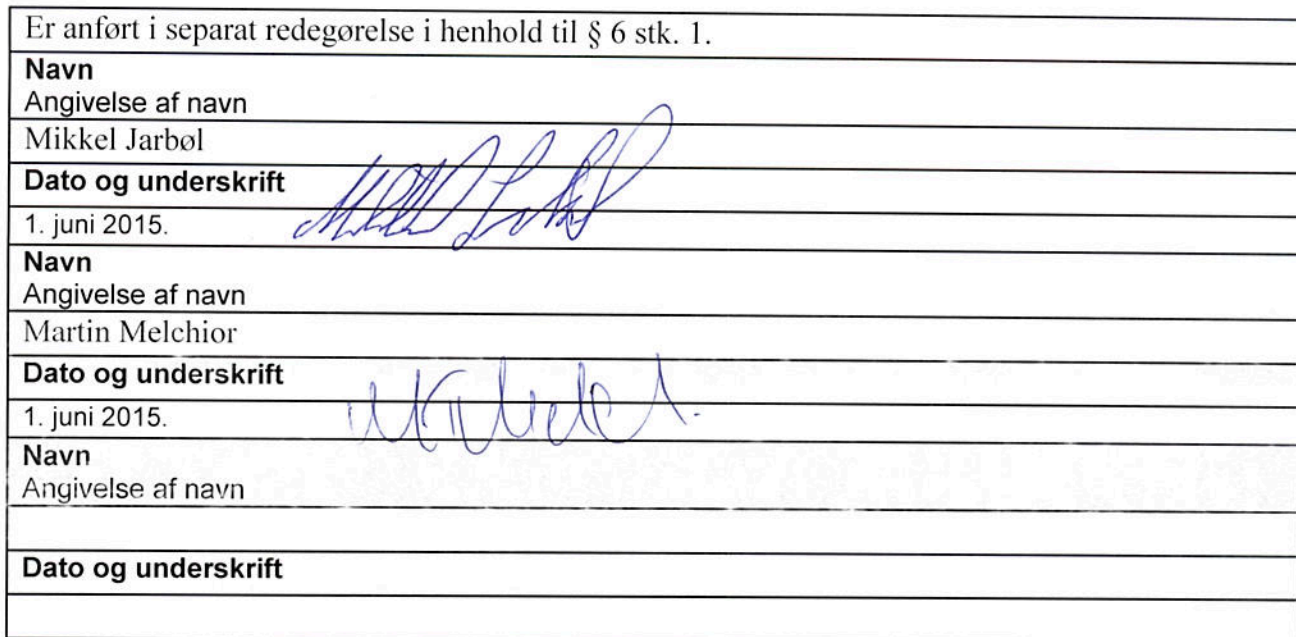 Er anført i separat redegørelse i henhold til § 6 stk. 1.
Navn
Angivelse af navn
Mikkel Jarbøl
Dato og underskrift
1. juni 2015.
Navn
Angivelse af navn
Martin Melchior
Dato og underskrift
1. juni 2015.
Navn
Angivelse af navn
Dato og underskrift